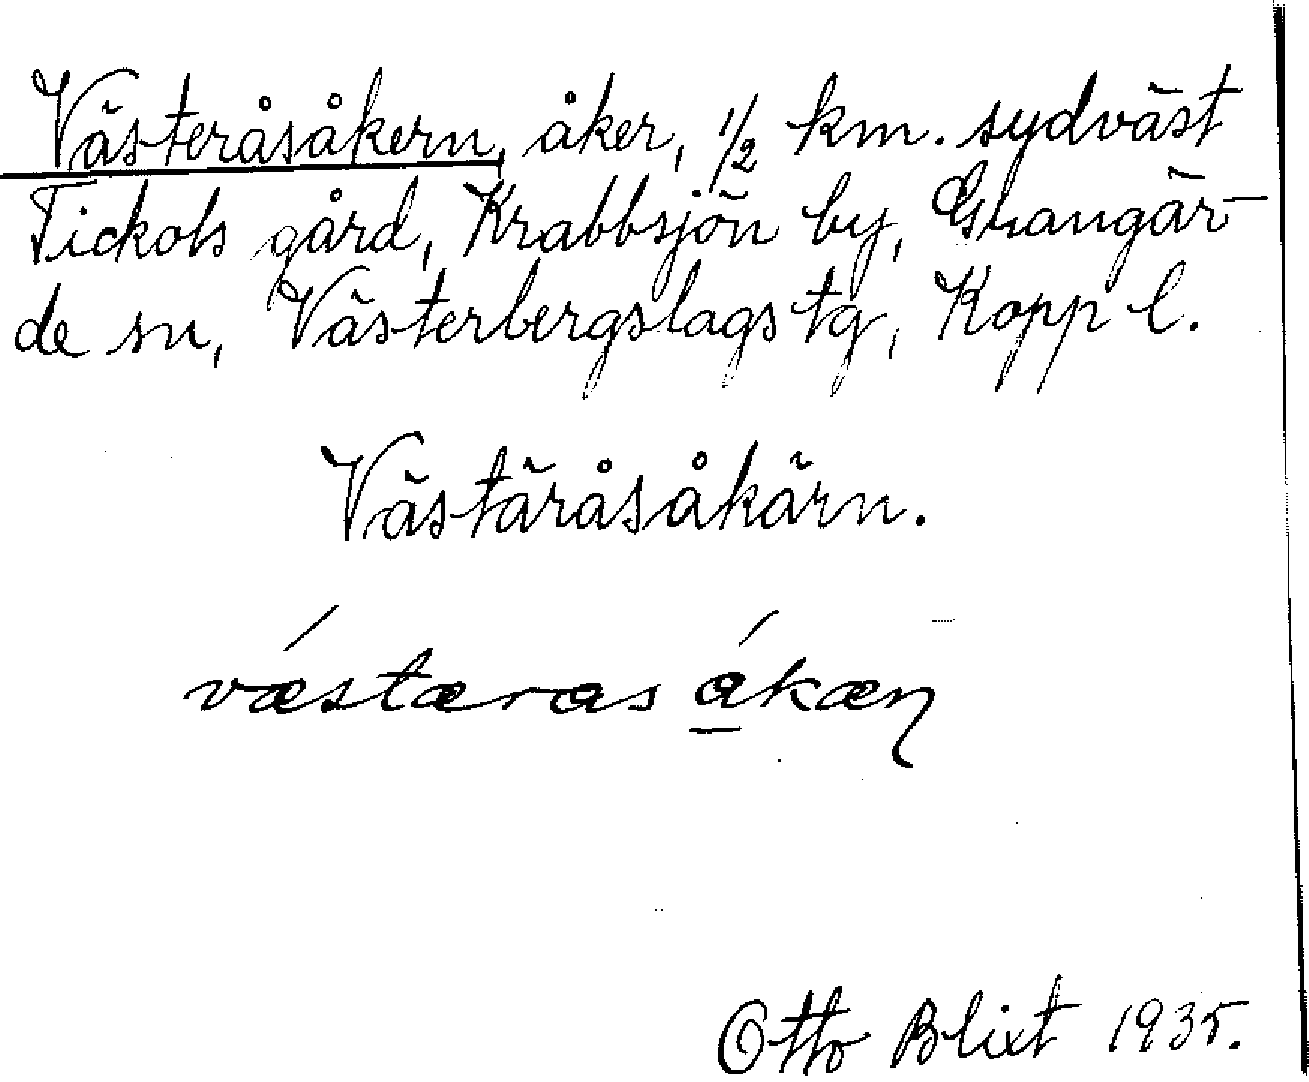 Västeråsåkern, åker, 1/2 km. sydväst
Tickols gård, Krabbsjön by, Grangär-
de sn, Västerbergslags tg, Kopp l.
Västäråsåkärn.
væstæras åkæn
Otto Blixt 1935.